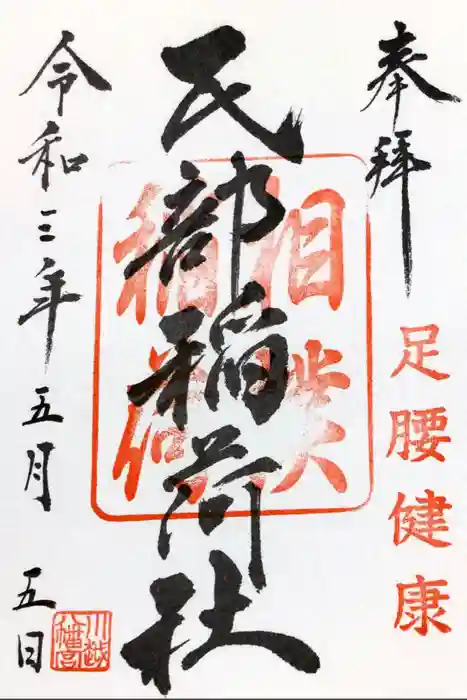 奉拝
足腰健康
相撲
稲荷
民部稲荷社
令和三年五月五日
川越
八幡宮